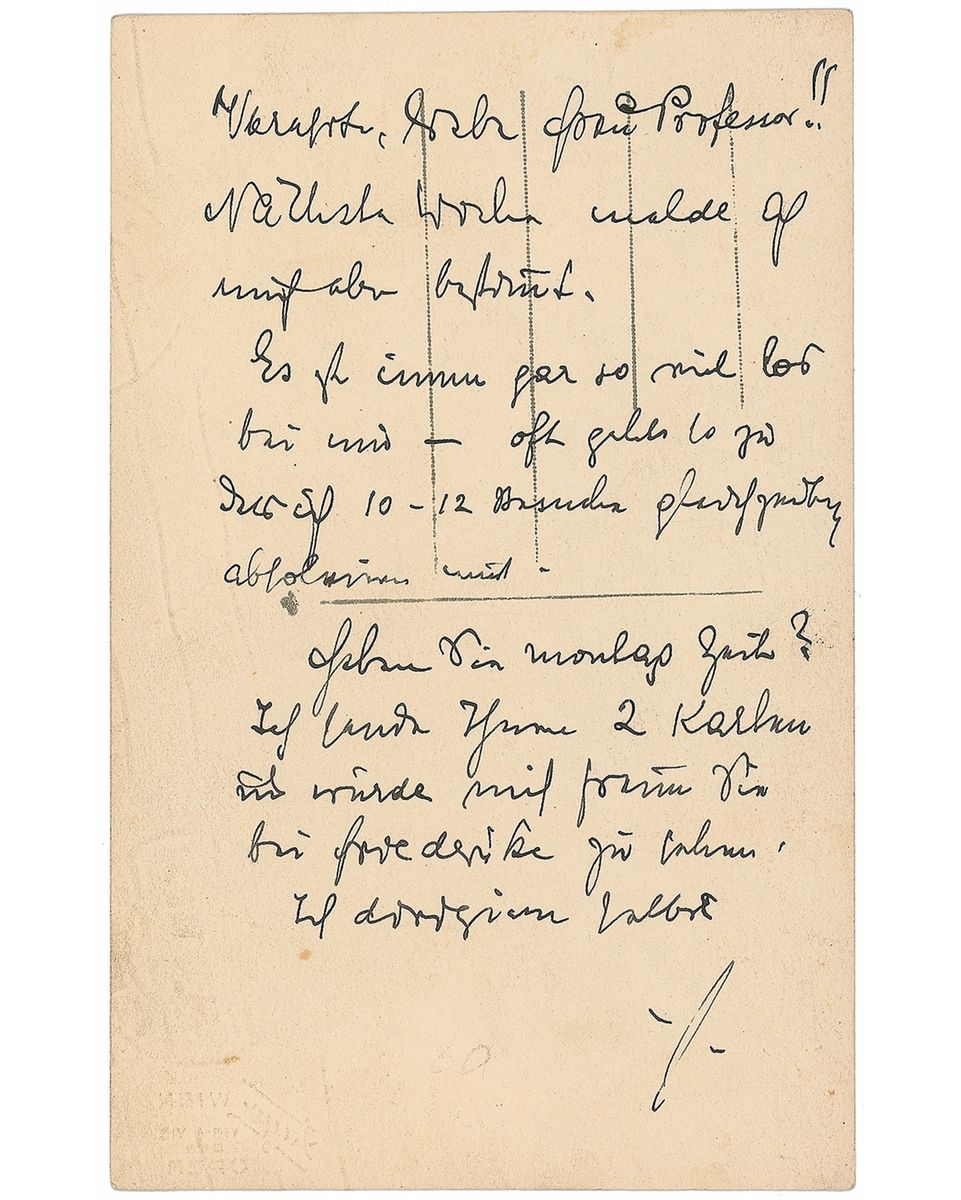 Verehrte, liebe Frau Professor!!
Nächste Woche melde ich
mich aber bestimt.
Es ist immer gar so viel los
bei uns – oft gehts so zu
dass ich 10–12 Besuche gleichzeitig
absolvieren muß.
Haben Sie montag Zeit?
Ich sende Ihnen 2 Karten
und würde mich freuen Sie
bei Friederike zu sehen.
Ich dirigiere selbst
WIEN